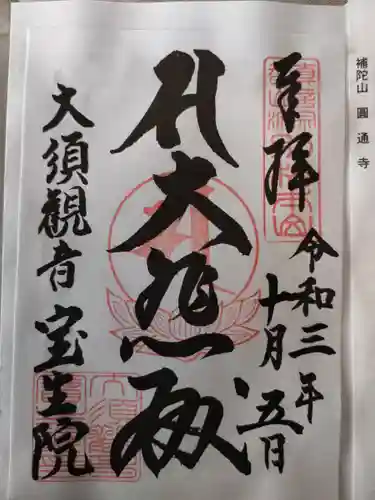 奉拝
令和三年
十月五日
大悲殿
大須観音
宝生院
補陀山 圓通寺